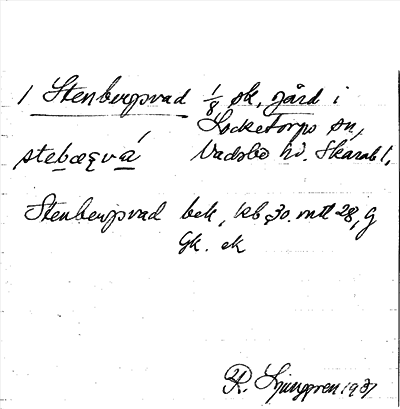 1 Stenbergsvad 1/8 sk, gård i
Locketorps sn,
stebæꞬvá Vadsbo hd. Skarab l,
Stenbergsvad bek, kb 30. mtl 28, G
Gk. ek
R. Ljunggren 1937